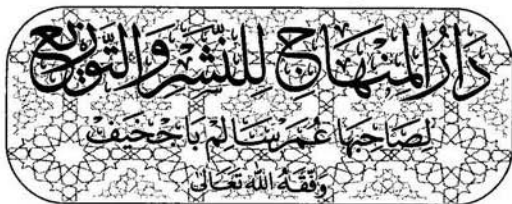 دَارُ المِنْهَاجِ لِلنَّشْرِ وَالتَّوْزِيعِ
لِصَاحِبِهَا عُمَر سَالِم بَاجخَيف
وَفَّقَهُ اللهُ تَعَالَى